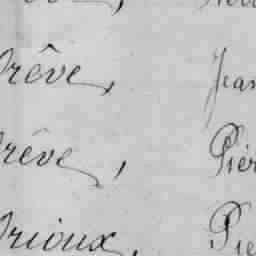 rêve, Jean
rêve, Pier
rioux, Pie